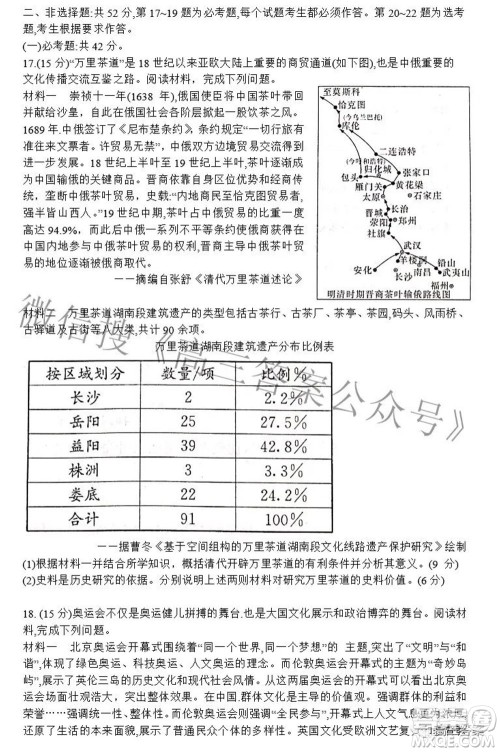 二、非选择题:共52分,第17~19题为必考题,每个试题考生都必须作答。第20~22题为选考
题,考生根据要求作答。
(一)必考题:共42分。
17.(15分)"万里茶道"是18世纪以来亚欧大陆上重要的商贸通道(如下图),也是中俄重要的
文化传播交流互鉴之路。阅读材料,完成下列问题。
材料一 崇祯十一年(1638年),俄国使臣将中国茶叶带回
并献给沙皇,自此在俄国社会各阶层掀起一股饮茶之风。
1689年,中俄签订了《尼布楚条约》,条约规定"一切行旅有
准许往来文票者、许贸易无禁",中俄双方边境贸易因而得到
进一步发展。18世纪上半叶至19世纪上半叶,茶叶逐渐成
为中国输俄的关键商品。晋商依靠自身区位优势和经商传
统,垄断中俄茶叶贸易,史载:"内地民商至恰克图贸易者,
强半皆山西人。"19世纪中期,茶叶占中俄贸易的比重一度
高达94.9%,而此后中俄一系列不平等条约使俄商获得在
中国内地参与中俄茶叶贸易的权利,晋商主导中俄茶叶贸
易的地位逐渐被俄商取代。
——摘编自张舒《清代万里茶道述论》
至莫斯科
恰克图
(今乌兰巴托)
库伦
二连浩特
(今呼和浩特)
归化城
张家口
包头
黄花梁
雁门关
太原
石家庄
长治
晋城
郑州
荥阳
社旗
武汉
羊楼洞
铅山
安化
长沙
南昌
武夷山
福州
明清时期晋商茶叶输俄路线图
材料二 万里茶道湖南段建筑遗产的类型包括古茶行、古茶厂、茶亭、茶园,码头、风雨桥、
古驿道及古街等八大类,共计90余项。
万里茶道湖南段建筑遗产分布比例表
按区域划分 数量/项 比例%
长沙 2 2.2%
岳阳 25 27.5%
益阳 39 42.8%
株洲 3 3.3%
娄底 22 24.2%
合计 91 100%
——据曹冬《基于空间组构的万里茶道湖南段文化线路遗产保护研究》绘制
(1)根据材料一并结合所学知识,概括清代开辟万里茶道的有利条件。(9分)
(2)史料是历史研究的依据。分别说明上述两则材料对研究万里茶道的史料价值。(6分)
18.(15分)奥运会不仅是奥运健儿拼搏的舞台,也是大国文化展示和政治博弈的舞台。阅读材
料,完成下列问题。
材料一 北京奥运会开幕式围绕着"同一个世界,同一个梦想"的 主题,突出了"文明"与"和
谐",体现了绿色奥运、科技奥运、人文奥运的理念。而伦敦奥运会开幕式的主题为"奇妙岛
屿",展示了英伦三岛的历史文化和现代社会风情。从这两届奥运会的开幕式来看,北京奥运
会场面壮观浩大,突出表现为整体的表演。在中国,群体文化是主导,强调的是集体的利益和
荣誉……强调奉献的精神和牺牲的价值。而伦敦奥运会的开幕式上人文气息更为浓厚,
还原了生活的本来面貌,展示了普通民众个体的多样性。英国文化受欧洲文艺复兴
微信搜《高三答案公众号》